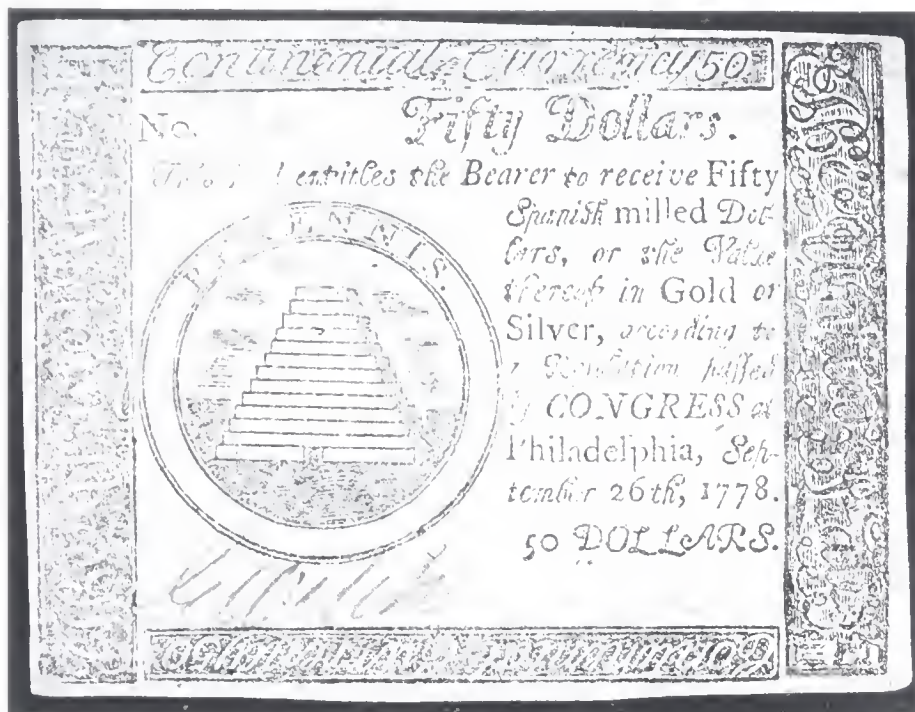 Continental Currency 50
No. Fifty Dollars.
entitles the Bearer to receive Fifty
Spanish milled Dol-
lars, or the Value
thereof in Gold or
Silver, according to
a Resolution passed
by CONGRESS at
Philadelphia, Sep-
tember 26th, 1778.
50 DOLLARS.